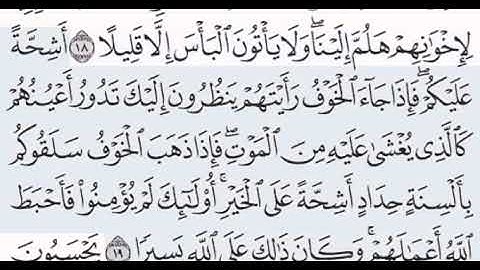 لِإِخْوَٰنِهِمْ هَلُمَّ إِلَيْنَا ۖ وَلَا يَأْتُونَ ٱلْبَأْسَ إِلَّا قَلِيلًا ١٨ أَشِحَّةً
عَلَيْكُمْ ۖ فَإِذَا جَآءَ ٱلْخَوْفُ رَأَيْتَهُمْ يَنظُرُونَ إِلَيْكَ تَدُورُ أَعْيُنُهُمْ
كَٱلَّذِى يُغْشَىٰ عَلَيْهِ مِنَ ٱلْمَوْتِ ۖ فَإِذَا ذَهَبَ ٱلْخَوْفُ سَلَقُوكُم
بِأَلْسِنَةٍ حِدَادٍ أَشِحَّةً عَلَى ٱلْخَيْرِ ۚ أُو۟لَٰٓئِكَ لَمْ يُؤْمِنُوا۟ فَأَحْبَطَ
ٱللَّهُ أَعْمَٰلَهُمْ ۚ وَكَانَ ذَٰلِكَ عَلَى ٱللَّهِ يَسِيرًا ١٩ يَحْسَبُونَ